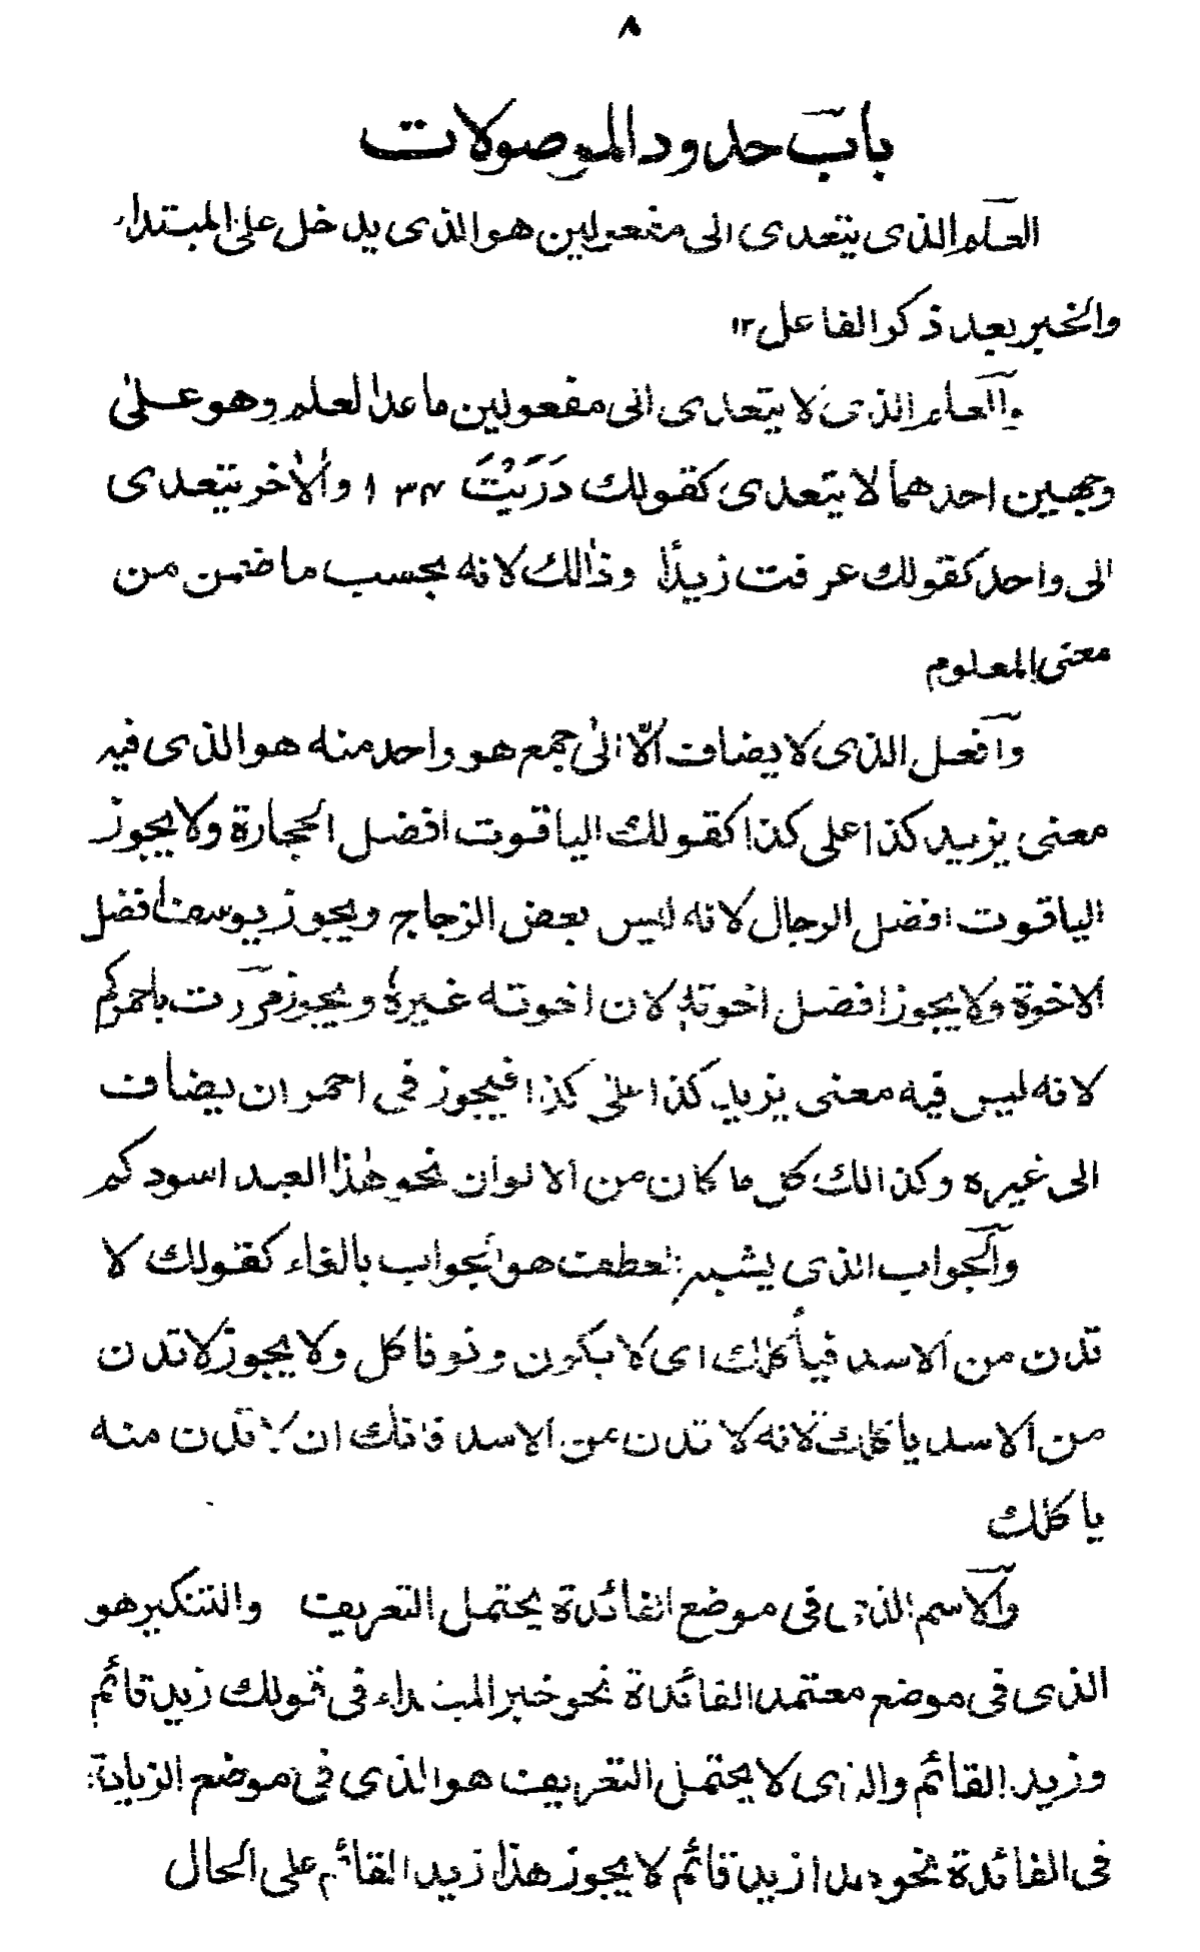 ٨
باب حدود الموصولات
العلم الذى يتعدى الى مفعولين هو الذى يدخل على المبتداء
والخبر بعد ذكر الفاعل ١٢
والعلم الذى لا يتعدى الى مفعولين ما عدا العلم وهو على
وجهين احدهما لا يتعدى كقولك دَرَيْتَ ١٣٤ والاٰخر يتعدى
الى واحد كقولك عرفت زيدًا وذٰالك لانه بحسب ما ضمن من
معنى المعلوم
وافعل الذى لا يضاف الّا الىٰ جمع هو واحد منه هو الذى فيه
معنى يزيد كذا على كذا كقولك الياقوت افضل الحجارة ولا يجوز
الياقوت افضل الرجال لانه ليس بعض الزجاج ويجوز يوسف افضل
الاخوة ولا يجوز افضل اخوته لان اخوته غيره ويجوز مررت باحمركم
لانه ليس فيه معنى يزيد كذا على كذا فيجوز فى احمر ان يضاف
الى غيره وكذالك كل ما كان من الالوان نحو هٰذا العبد اسودكم
والجواب الذى يشبه العطف هو الجواب بالفاء كقولك لا
تدن من الاسد فيأكلك اى لا يكون دنو فاكل ولا يجوز لا تدن
من الاسد ياكلك لانه لا تدن من الاسد فانك ان لا تدن منه
ياكلك
والاسم الذى فى موضع الفائدة يحتمل التعريف والتنكير هو
الذى فى موضع معتمد الفائدة نحو خبر المبتداء فى قولك زيد قائم
وزيد القائم والذى لا يحتمل التعريف هو الذى فى موضع الزيادة
فى الفائدة نحو هذا زيد قائم لا يجوز هذا زيد القائم على الحال